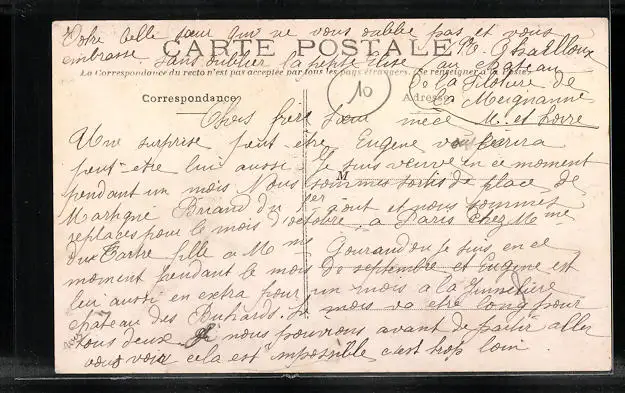 Votre belle sœur qui ne vous oublie pas et vous
embrasse. sans oublier la petite Elise
CARTE POSTALE
La Correspondance du recto n'est pas acceptée par tous les pays étrangers. (Se renseigner à la Poste)
R. Chailloux
au chateau
de la Filotière de
la Meignanne
M. et Loire
10
Correspondance
Adresse
M
Chers frere sœur niece
Une surprise peut-être Eugène vous écrira
peut-etre lui aussi Je suis veuve en ce moment
pendant un mois Nous sommes sortis de place de
Martigné Briand du 1er aout et nous sommes
replaces pour le mois d'octobre a Paris chez Mme
du fille a Mme Gourandou je suis en ce
moment pendant le mois de septembre et Eugène est
lui aussi en extra pour un mois a la
chateau des mois va etre long pour
tous deux Si nous pouvions avant de partir aller
vous voir cela est impossible c'est trop loin.